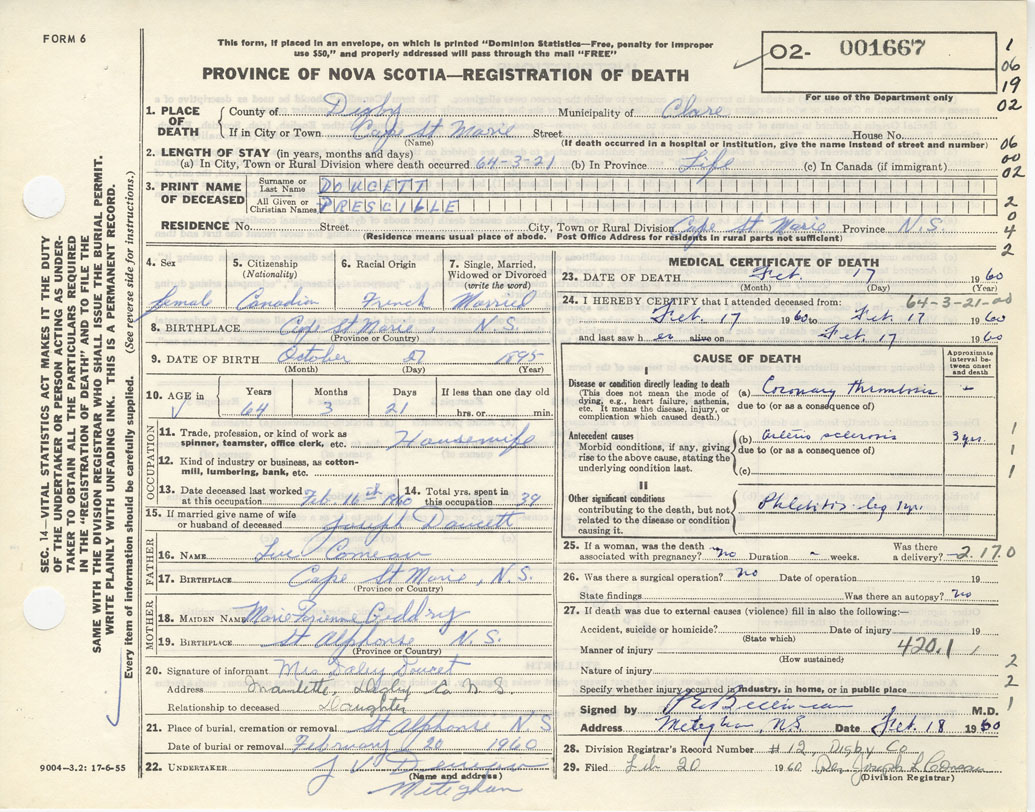 FORM 6
This form, if placed in an envelope, on which is printed "Dominion Statistics—Free, penalty for improper
use $50," and properly addressed will pass through the mail "FREE"
PROVINCE OF NOVA SCOTIA—REGISTRATION OF DEATH
02- 001667
For use of the Department only
1
06
19
02
06
00
02
2
0
4
2
1. PLACE OF DEATH County of Digby Municipality of Clare
If in City or Town Cape St Marie Street House No.
(Name) (If death occurred in a hospital or institution, give the name instead of street and number)
2. LENGTH OF STAY (in years, months and days)
(a) In City, Town or Rural Division where death occurred 64-3-21 (b) In Province Life (c) In Canada (if immigrant)
3. PRINT NAME OF DECEASED
Surname or Last Name DOUCETT
All Given or Christian Names PRESCILLE
RESIDENCE No. Street City, Town or Rural Division Cape St Marie Province N.S.
(Residence means usual place of abode. Post Office Address for residents in rural parts not sufficient)
4. Sex female
5. Citizenship (Nationality) Canadian
6. Racial Origin French
7. Single, Married, Widowed or Divorced (write the word) Married
8. BIRTHPLACE Cape St Marie, N.S.
(Province or Country)
9. DATE OF BIRTH October 27 1895
(Month) (Day) (Year)
10. AGE Years Months Days If less than one day
64 3 21 hrs. or min.
OCCUPATION
11. Trade, profession, or kind of work as spinner, teamster, office clerk, etc. Housewife
12. Kind of industry or business, as cotton-mill, lumbering, bank, etc.
13. Date deceased last worked at this occupation Feb 16th 1960 14. Total yrs. spent in this occupation 39
15. If married give name of wife or husband of deceased Joseph Doucett
FATHER
16. NAME Luc Comeau
17. BIRTHPLACE Cape St Marie, N.S.
(Province or Country)
MOTHER
18. MAIDEN NAME Marie
19. BIRTHPLACE St Alphonse N.S.
(Province or Country)
20. Signature of informant Mrs Doucet
Address Digby Co N.S.
Relationship to deceased Daughter
21. Place of burial, cremation or removal St Alphonse N S
Date of burial or removal February 20 1960
22. UNDERTAKER J V
(Name and address)
Meteghan
9004-3.2: 17-6-55
MEDICAL CERTIFICATE OF DEATH
23. DATE OF DEATH Feb. 17 1960
(Month) (Day) (Year)
24. I HEREBY CERTIFY that I attended deceased from: 64-3-21-00
Feb. 17 1960 to Feb. 17 1960
and last saw h er alive on Feb. 17 1960
CAUSE OF DEATH
Approximate interval between onset and death
I
Disease or condition directly leading to death
(This does not mean the mode of dying, e.g., heart failure, asthenia, etc. It means the disease, injury, or complication which caused death.)
(a) Coronary thrombosis
due to (or as a consequence of)
Antecedent causes
Morbid conditions, if any, giving rise to the above cause, stating the underlying condition last.
(b) Arterio sclerosis 3 yrs.
due to (or as a consequence of)
(c)
1
1
1
II
Other significant conditions
contributing to the death, but not related to the disease or condition causing it.
Phlebitis leg 1 yr.
25. If a woman, was the death associated with pregnancy? no Duration - weeks. Was there a delivery? - 2.17.0
26. Was there a surgical operation? no Date of operation 19
State findings Was there an autopsy? no
27. If death was due to external causes (violence) fill in also the following:—
Accident, suicide or homicide? Date of injury 19
(State which)
Manner of injury 420.1
(How sustained)
Nature of injury
Specify whether injury occurred in industry, in home, or in public place
2
2
1
Signed by M.D.
Address Meteghan, N.S. Date Feb. 18 1960
28. Division Registrar's Record Number #12, Digby Co
29. Filed Feb 20 1960 Joseph L Comeau
(Division Registrar)
SEC. 14—VITAL STATISTICS ACT MAKES IT THE DUTY
OF THE UNDERTAKER OR PERSON ACTING AS UNDER-
TAKER TO OBTAIN ALL THE PARTICULARS REQUIRED
IN THE "REGISTRATION OF DEATH" AND TO FILE THE
SAME WITH THE DIVISION REGISTRAR WHO SHALL ISSUE THE BURIAL PERMIT.
WRITE PLAINLY WITH UNFADING INK. THIS IS A PERMANENT RECORD.
Every item of information should be carefully supplied. (See reverse side for instructions.)